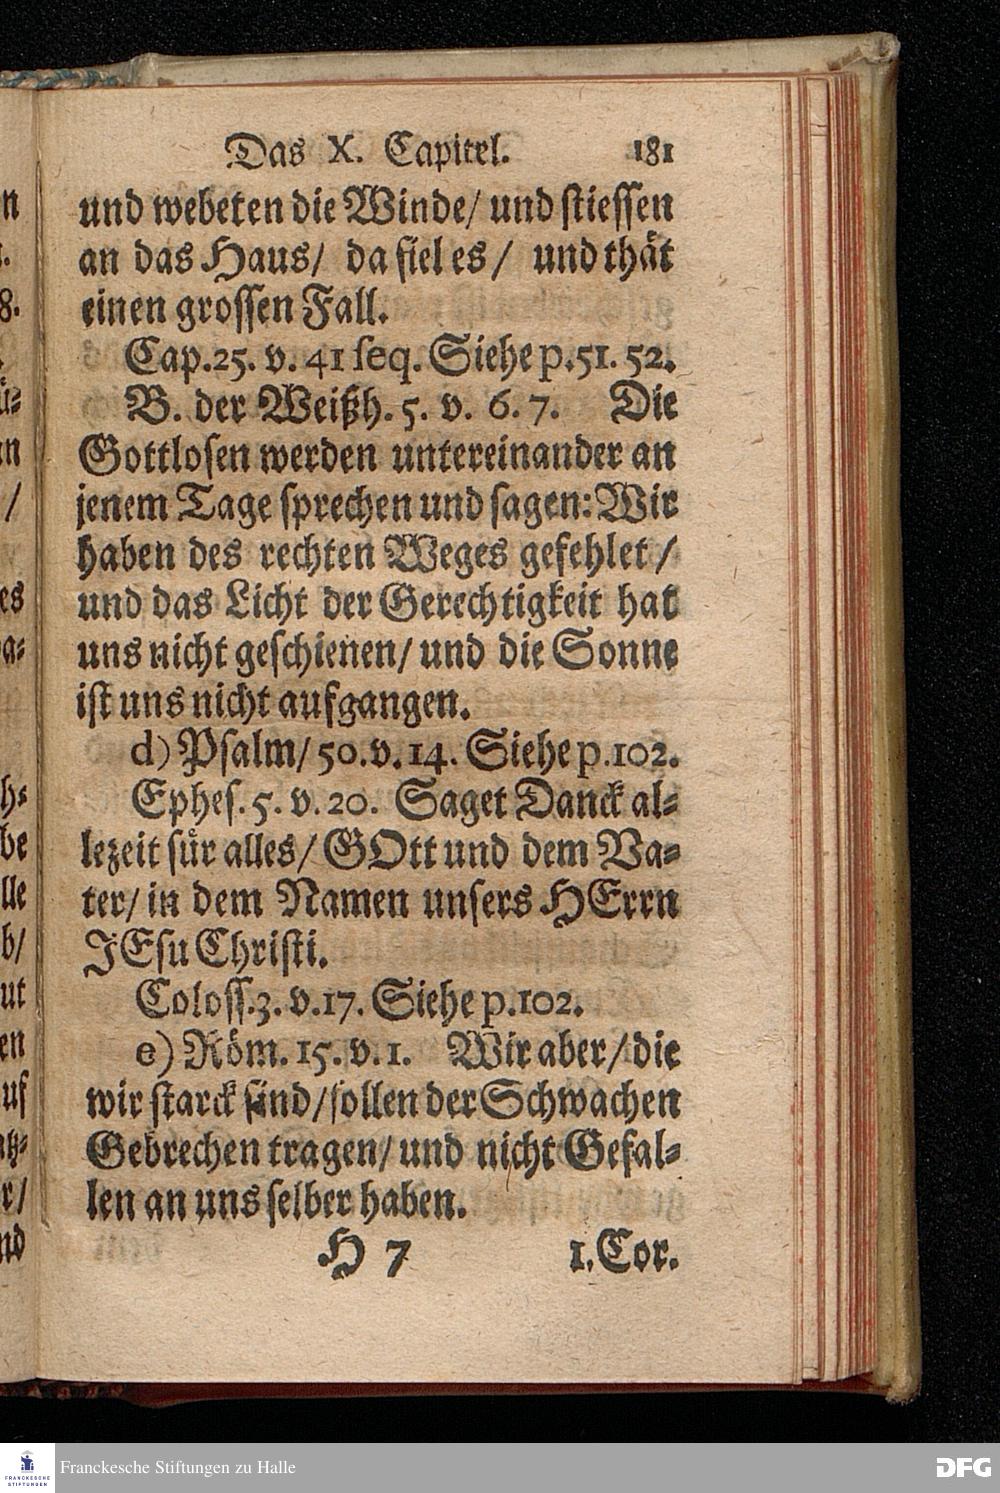 Das X. Capitel. 181
und webeten die Winde/ und stiessen
an das Haus/ da fiel es/ und thät
einen grossen Fall.
Cap. 25. v. 41 seq. Siehe p. 51. 52.
B. der Weißh. 5. v. 6. 7. Die
Gottlosen werden untereinander an
jenem Tage sprechen und sagen: Wir
haben des rechten Weges gefehlet/
und das Licht der Gerechtigkeit hat
uns nicht geschienen/ und die Sonne
ist uns nicht aufgangen.
d) Psalm/ 50. v. 14. Siehe p. 102.
Ephes. 5. v. 20. Saget Danck al=
lezeit für alles/ GOtt und dem Va=
ter/ in dem Namen unsers HErrn
JEsu Christi.
Coloss. 3. v. 17. Siehe p. 102.
e) Röm. 15. v. 1. Wir aber/ die
wir starck sind/ sollen der Schwachen
Gebrechen tragen/ und nicht Gefal=
len an uns selber haben.
H 7 1. Cor.
FRANCKESCHE
STIFTUNGEN
Franckesche Stiftungen zu Halle
DFG